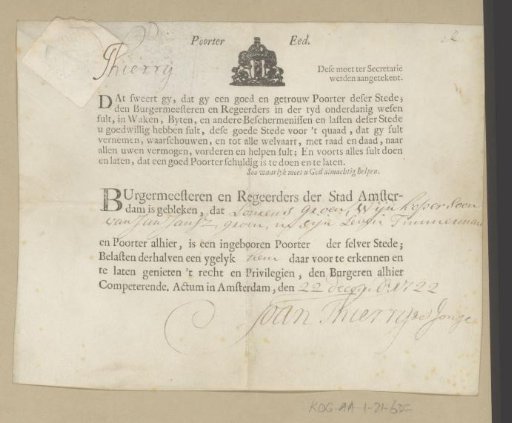 Poorter Eed.
Thierry
Dese moet ter Secretarie
werden aangetekent.
DAt sweert gy, dat gy een goed en getrouw Poorter deser Stede;
den Burgermeesteren en Regeerders in der tyd onderdanig wesen
sult, in Waken, Byten, en andere Beschermenissen en lasten deser Stede
u goedwillig hebben sult, dese goede Stede voor 't quaad, dat gy sult
vernemen, waarschouwen, en tot alle welvaart, met raad en daad, naar
allen uwen vermogen, vorderen en helpen sult; En voorts alles sult doen
en laten, dat een goed Poorter schuldig is te doen en te laten.
Soo waarlyk moet u God almachtig helpen.
BUrgermeesteren en Regeerders der Stad Amster-
dam is gebleken, dat Lourens Groen, Wijnkoper Soon
van Jan groen, in zijn Leven Timmerman
en Poorter alhier, is een ingebooren Poorter der selver Stede;
Belasten derhalven een ygelyk hem daar voor te erkennen en
te laten genieten 't recht en Privilegien, den Burgeren alhier
Competerende. Actum in Amsterdam, den 22 decemb 1722
Jan Thierry de Jonge
KOG-AA-1-21-